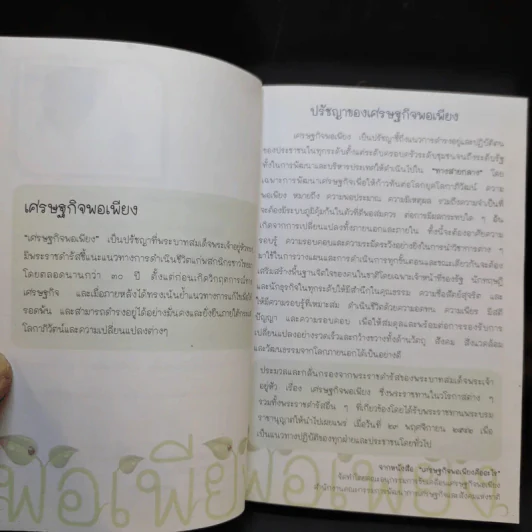 เศรษฐกิจพอเพียง
"เศรษฐกิจพอเพียง" เป็นปรัชญาที่พระบาทสมเด็จพระเจ้าอยู่หัวทรง
มีพระราชดำรัสชี้แนะแนวทางการดำเนินชีวิตแก่พสกนิกรชาวไทยมา
โดยตลอดนานกว่า ๓๐ ปี ตั้งแต่ก่อนเกิดวิกฤตการณ์ทาง
เศรษฐกิจ และเมื่อภายหลังได้ทรงเน้นย้ำแนวทางการแก้ไขเพื่อให้
รอดพ้น และสามารถดำรงอยู่ได้อย่างมั่นคงและยั่งยืนภายใต้กระแส
โลกาภิวัตน์และความเปลี่ยนแปลงต่างๆ
ปรัชญาของเศรษฐกิจพอเพียง
เศรษฐกิจพอเพียง เป็นปรัชญาชี้ถึงแนวการดำรงอยู่และปฏิบัติตน
ของประชาชนในทุกระดับตั้งแต่ระดับครอบครัวระดับชุมชนจนถึงระดับรัฐ
ทั้งในการพัฒนาและบริหารประเทศให้ดำเนินไปใน "ทางสายกลาง" โดย
เฉพาะการพัฒนาเศรษฐกิจเพื่อให้ก้าวทันต่อโลกยุคโลกาภิวัฒน์ ความ
พอเพียง หมายถึง ความพอประมาณ ความมีเหตุผล รวมถึงความจำเป็นที่
จะต้องมีระบบภูมิคุ้มกันในตัวที่ดีพอสมควร ต่อการมีผลกระทบใด ๆ อัน
เกิดจากการเปลี่ยนแปลงทั้งภายนอกและภายใน ทั้งนี้จะต้องอาศัยความ
รอบรู้ ความรอบคอบและความระมัดระวังอย่างยิ่งในการนำวิชาการต่าง ๆ
มาใช้ในการวางแผนและการดำเนินการทุกขั้นตอนและขณะเดียวกันจะต้อง
เสริมสร้างพื้นฐานจิตใจของคนในชาติโดยเฉพาะเจ้าหน้าที่ของรัฐ นักทฤษฎี
และนักธุรกิจในทุกระดับให้มีสำนึกในคุณธรรม ความซื่อสัตย์สุจริต และ
ให้มีความรอบรู้ที่เหมาะสม ดำเนินชีวิตด้วยความอดทน ความเพียร มีสติ
ปัญญา และความรอบคอบ เพื่อให้สมดุลและพร้อมต่อการรองรับการ
เปลี่ยนแปลงอย่างรวดเร็วและกว้างขวางทั้งด้านวัตถุ สังคม สิ่งแวดล้อม
และวัฒนธรรมจากโลกภายนอกได้เป็นอย่างดี
ประมวลและกลั่นกรองจากพระราชดำรัสของพระบาทสมเด็จพระเจ้า
อยู่หัว เรื่อง เศรษฐกิจพอเพียง ซึ่งพระราชทานในวโรกาสต่าง ๆ
รวมทั้งพระราชดำรัสอื่น ๆ ที่เกี่ยวข้องโดยได้รับพระราชทานพระบรม
ราชานุญาตให้นำไปเผยแพร่ เมื่อวันที่ ๒๙ พฤศจิกายน ๒๕๔๒ เพื่อ
เป็นแนวทางปฏิบัติของทุกฝ่ายและประชาชนโดยทั่วไป
จากหนังสือ "เศรษฐกิจพอเพียงคืออะไร"
จัดทำโดยคณะอนุกรรมการขับเคลื่อนเศรษฐกิจพอเพียง
สำนักงานคณะกรรมการพัฒนาการเศรษฐกิจและสังคมแห่งชาติ
พอเพียง พอเพียง